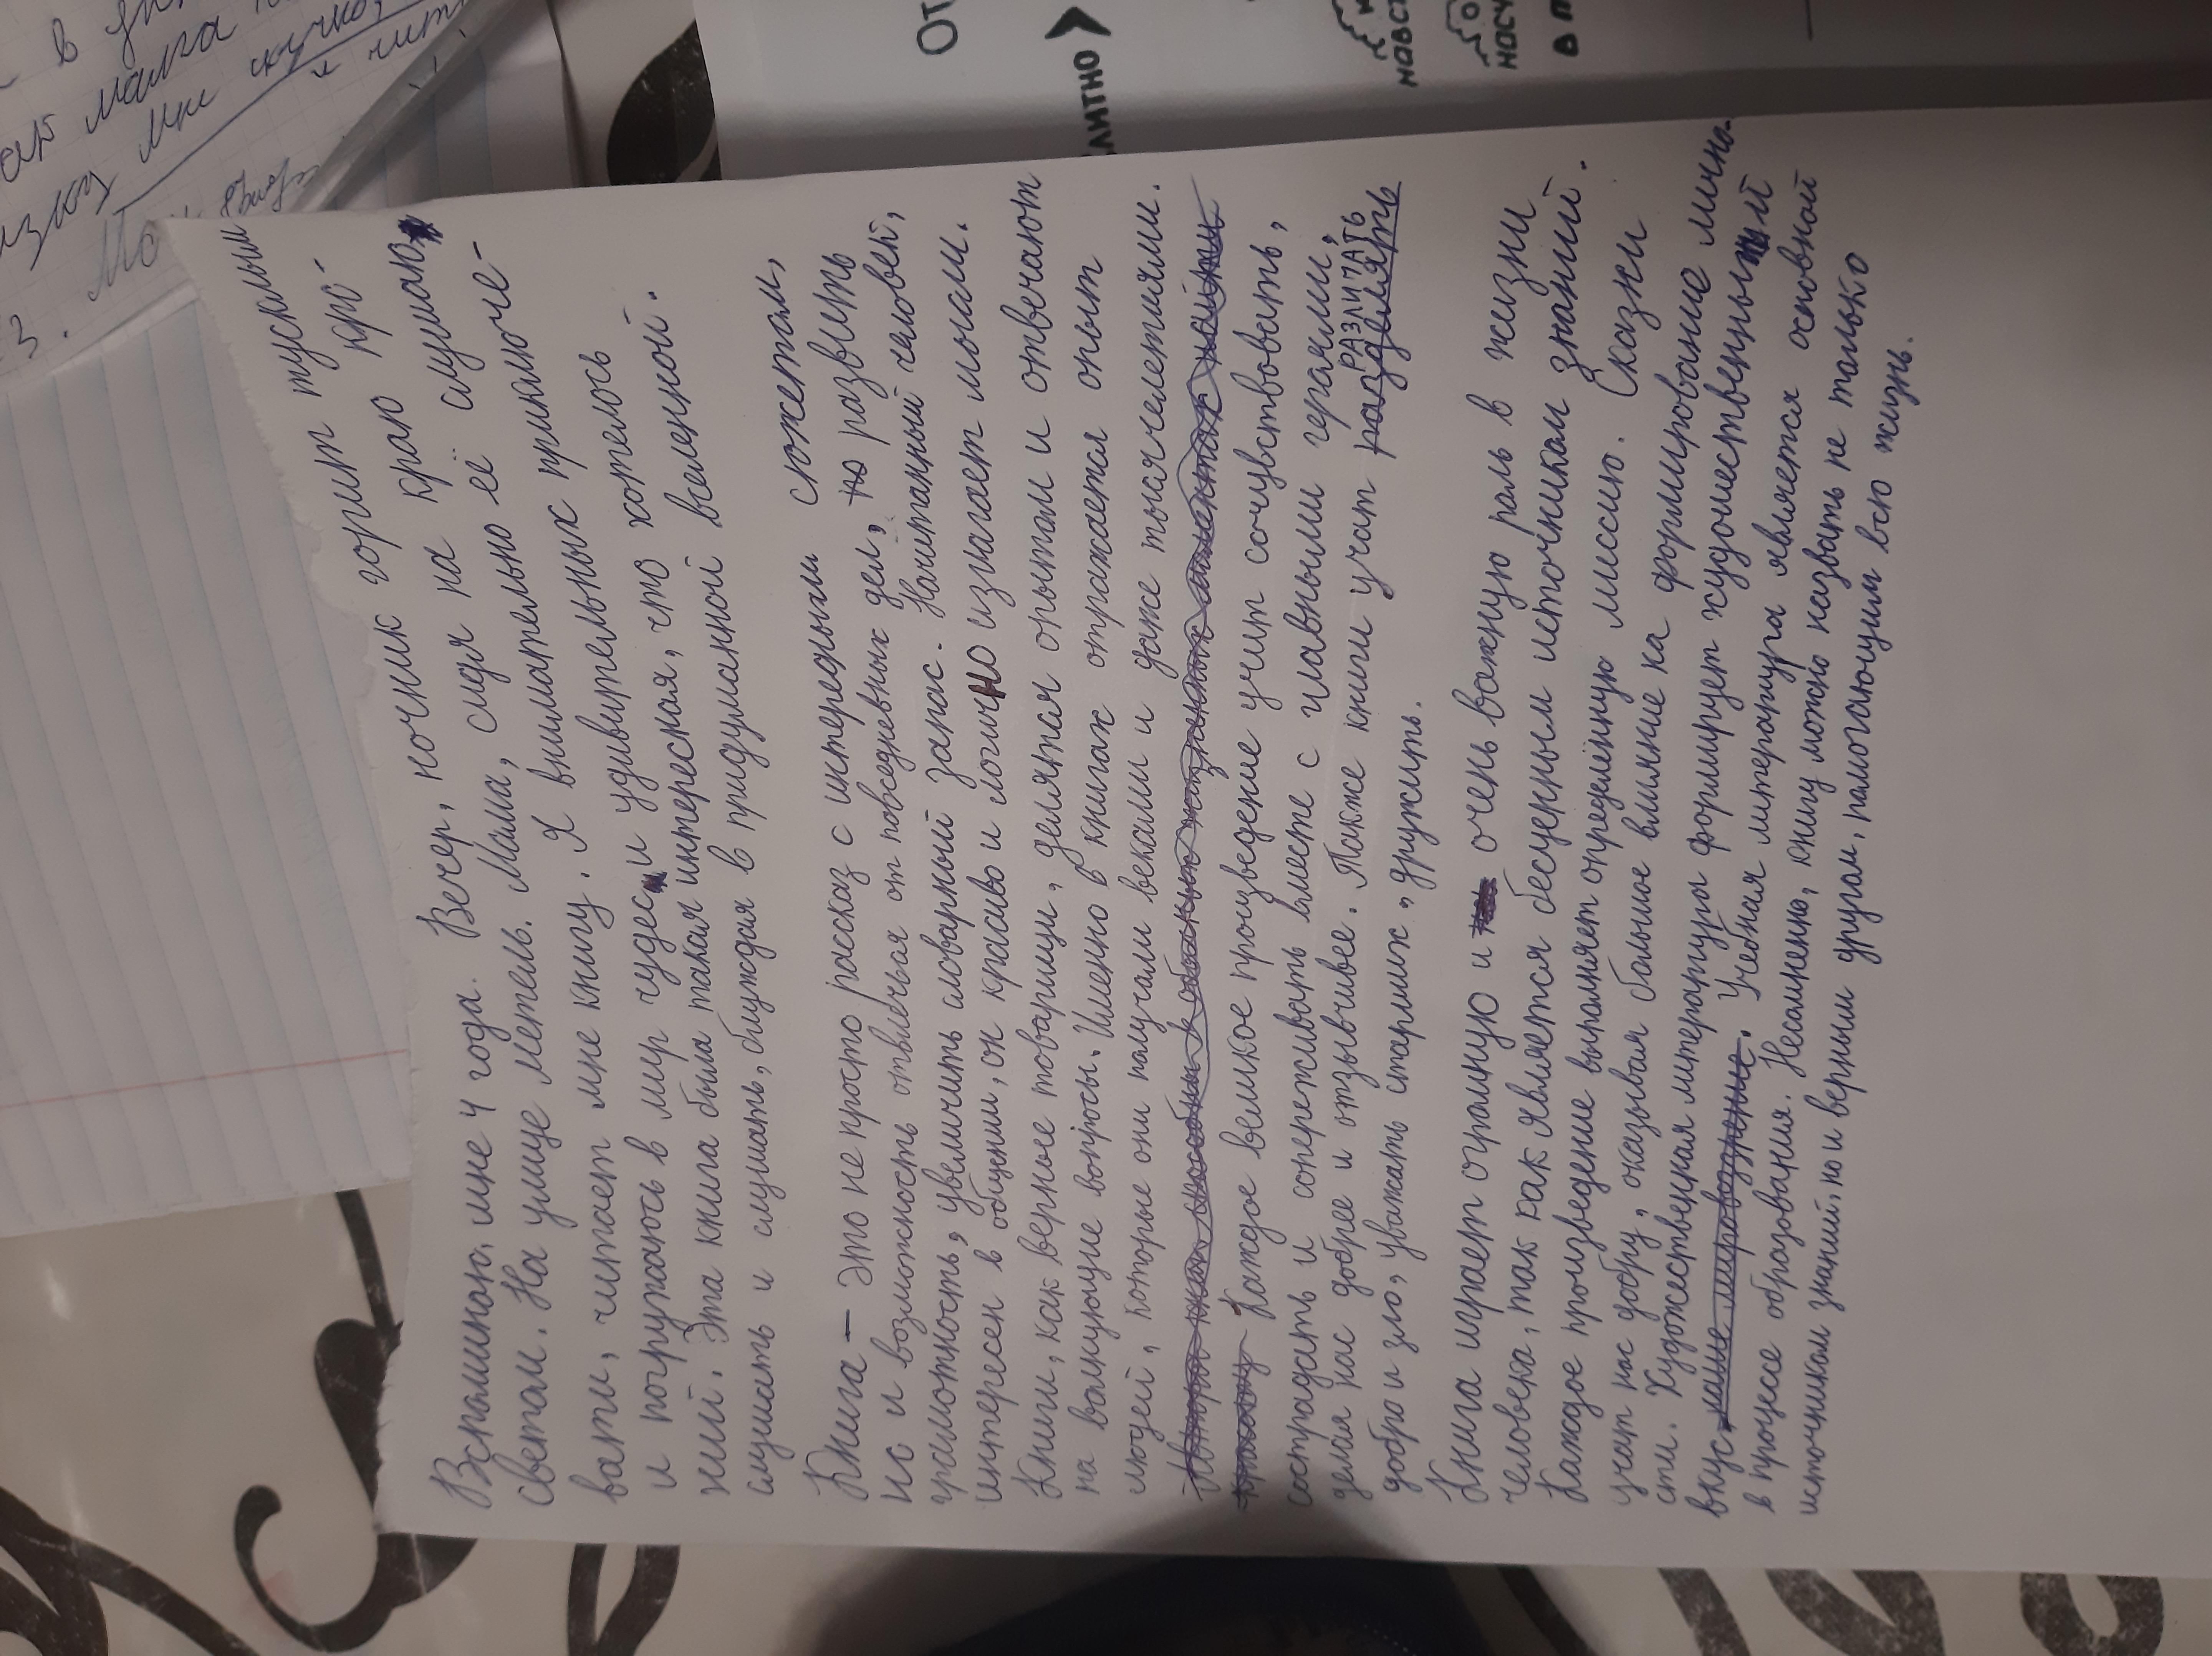 Вспоминаю, мне 4 года. Вечер, ночник горит тусклым
светом. На улице метель. Мама, сидя на краю кро-
вати, читает мне книгу. Я внимательно её слушаю
и погружаюсь в мир чудес и удивительных приключе-
ний. Эта книга была такая интересная, что хотелось
слушать и слушать, блуждая в придуманной вселенной.
Книга — это не просто рассказ с интересным сюжетом,
но и возможность отвлечься от повседневных дел, развить
грамотность, увеличить словарный запас. Начитанный человек,
интересен в общении, он красиво и логично излагает мысли.
Книги, как верные товарищи, делятся опытом и отвечают
на волнующие вопросы. Именно в книгах отражается опыт
людей, которые они получали веками и даже тысячелетиями.
Каждое великое произведение учит сочувствовать,
сострадать и сопереживать вместе с главными героями,
делая нас добрее и отзывчивее. Также книги учат разделять
РАЗЛИЧАТЬ
добро и зло, уважать старших, дружить.
Книга играет огромную и очень важную роль в жизни
человека, так как является бесценным источником знаний.
Каждое произведение выполняет определённую миссию. Сказки
учат нас добру, оказывая большое влияние на формирование лично-
сти. Художественная литература формирует художественный
вкус наше мировоззрение. Учебная литература является основной
в процессе образования. Несомненно, книгу можно назвать не только
источником знаний, но и верным другом, помогающим всю жизнь.
ОТ
ЛИТНО
НАВС
НАСЧ
В П
в
мама
мне скучно,
3. Мо